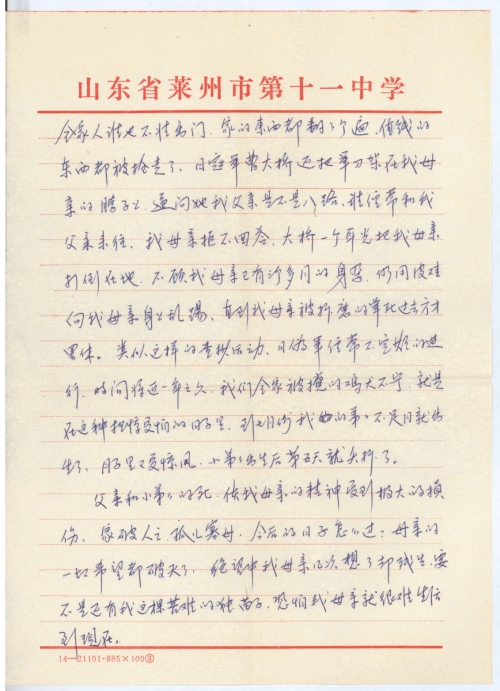 山东省莱州市第十一中学
全家人谁也不准出门，家的东西都翻了个遍，值钱的
东西都被抢走了，日寇军曹大桥还把军刀架在我母
亲的脖子上，逼问她我父亲是不是八路，谁经常和我
父亲来往，我母亲拒不回答，大桥一个耳光把我母亲
打倒在地，不顾我母亲已有许多月的身孕，仍用皮鞋
向我母亲身上乱踢，直到我母亲被折磨的昏死过去方才
罢休。类似这样的查抄活动，日伪军经常不定期的进
行，时间将近一年之久，我们全家被搅的鸡犬不宁，就是
在这种担惊受怕的日子里，到七月份我的弟弟不足月就出
生了，月子里又受惊风，小弟弟出生后第五天就夭折了。
父亲和小弟弟的死，使我母亲的精神受到极大的损
伤，家破人亡孤儿寡母，今后的日子怎么过？母亲的
一切希望都破灭了，绝望中我母亲几次想了却残生，要
不是还有我这棵苦难的独苗子，恐怕我母亲就很难生活
到现在。
14—21101·885×100③